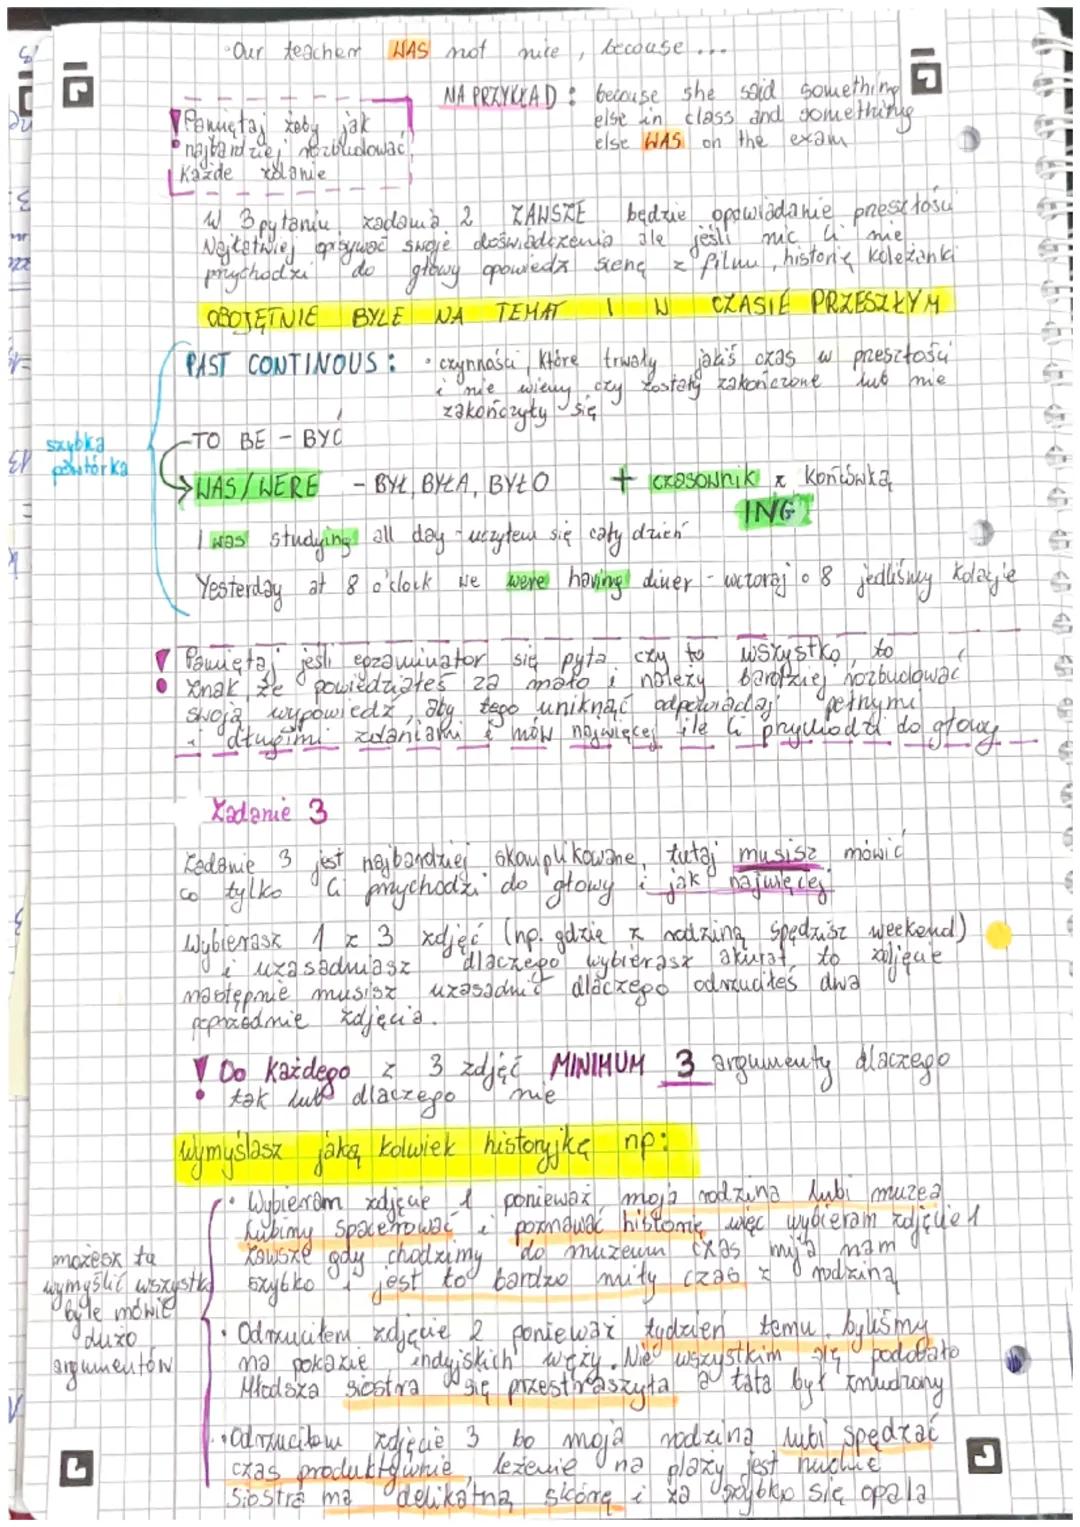 • Our teacher WAS not nice, becouse ...
NA PRZYKŁAD: becouse she said something
else in class and something
else WAS on the exam
! Pamiętaj żeby jak
najbardziej rozbudować
każde zdanie
W 3 pytaniu zadania 2 ZAWSZE będzie opowiadanie przeszłości
Najłatwiej opisywać swoje doświadczenia ale jeśli nic ci nie
przychodzi do głowy opowiedz scenę z filmu, historię koleżanki
OBOJĘTNIE BYLE NA TEMAT I W CZASIE PRZESZŁYM
PAST CONTINOUS: • czynności, które trwały jakiś czas w przeszłości
i nie wiemy czy zostały zakończone lub nie
zakończyły się
szybka
powtórka
TO BE - BYĆ
→ WAS/WERE - BYŁ, BYŁA, BYŁO + czasownik z końcówką
ING
I was studying all day - uczyłem się cały dzień
Yesterday at 8 o'clock we were having diner - wczoraj o 8 jedliśmy kolację
! Pamiętaj jeśli egzaminator się pyta czy to wszystko, to
znak, że powiedziałeś za mało i należy bardziej rozbudować
swoją wypowiedź, aby tego uniknąć odpowiadaj pełnymi
i długimi zdaniami i mów najwięcej ile ci przychodzi do głowy
Zadanie 3
Zadanie 3 jest najbardziej skomplikowane, tutaj musisz mówić
co tylko ci przychodzi do głowy i jak najwięcej
Wybierasz 1 z 3 zdjęć (np. gdzie z rodziną spędzisz weekend)
i uzasadniasz dlaczego wybierasz akurat to zdjęcie
następnie musisz uzasadnić dlaczego odrzuciłeś dwa
poprzednie zdjęcia.
! Do każdego z 3 zdjęć MINIMUM 3 argumenty dlaczego
tak lub dlaczego nie
Wymyślasz jaką kolwiek historyjkę np:
możesz tu
wymyślić wszystko
byle mówić
dużo
argumentów
• Wybieram zdjęcie 1 ponieważ moja rodzina lubi muzea
Lubimy spacerować i poznawać historię więc wybieram zdjęcie 1
Zawsze gdy chodzimy do muzeum czas mija nam
szybko i jest to bardzo miły czas z rodziną
• Odrzuciłem zdjęcie 2 ponieważ tydzień temu byliśmy
na pokazie indyjskich węży. Nie wszystkim się podobało
Młodsza siostra się przestraszyła a tata był znudzony
• Odrzuciłam zdjęcie 3 bo moja rodzina lubi spędzać
czas produktywnie, leżenie na plaży jest nudne
Siostra ma delikatną skórę i za szybko się opala